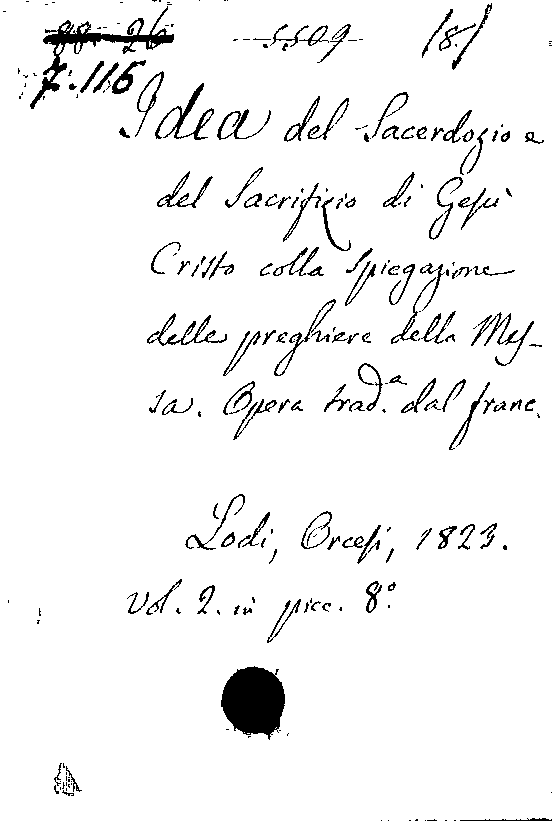 88. 26 5509 /8/
7.116
Idea del Sacerdozio e
del Sacrifizio di Gesù
Cristo colla spiegazione
delle preghiere della Mes-
sa. Opera trad.ª dal franc.
Lodi, Orcesi, 1823.
vol. 2. in picc. 8°.